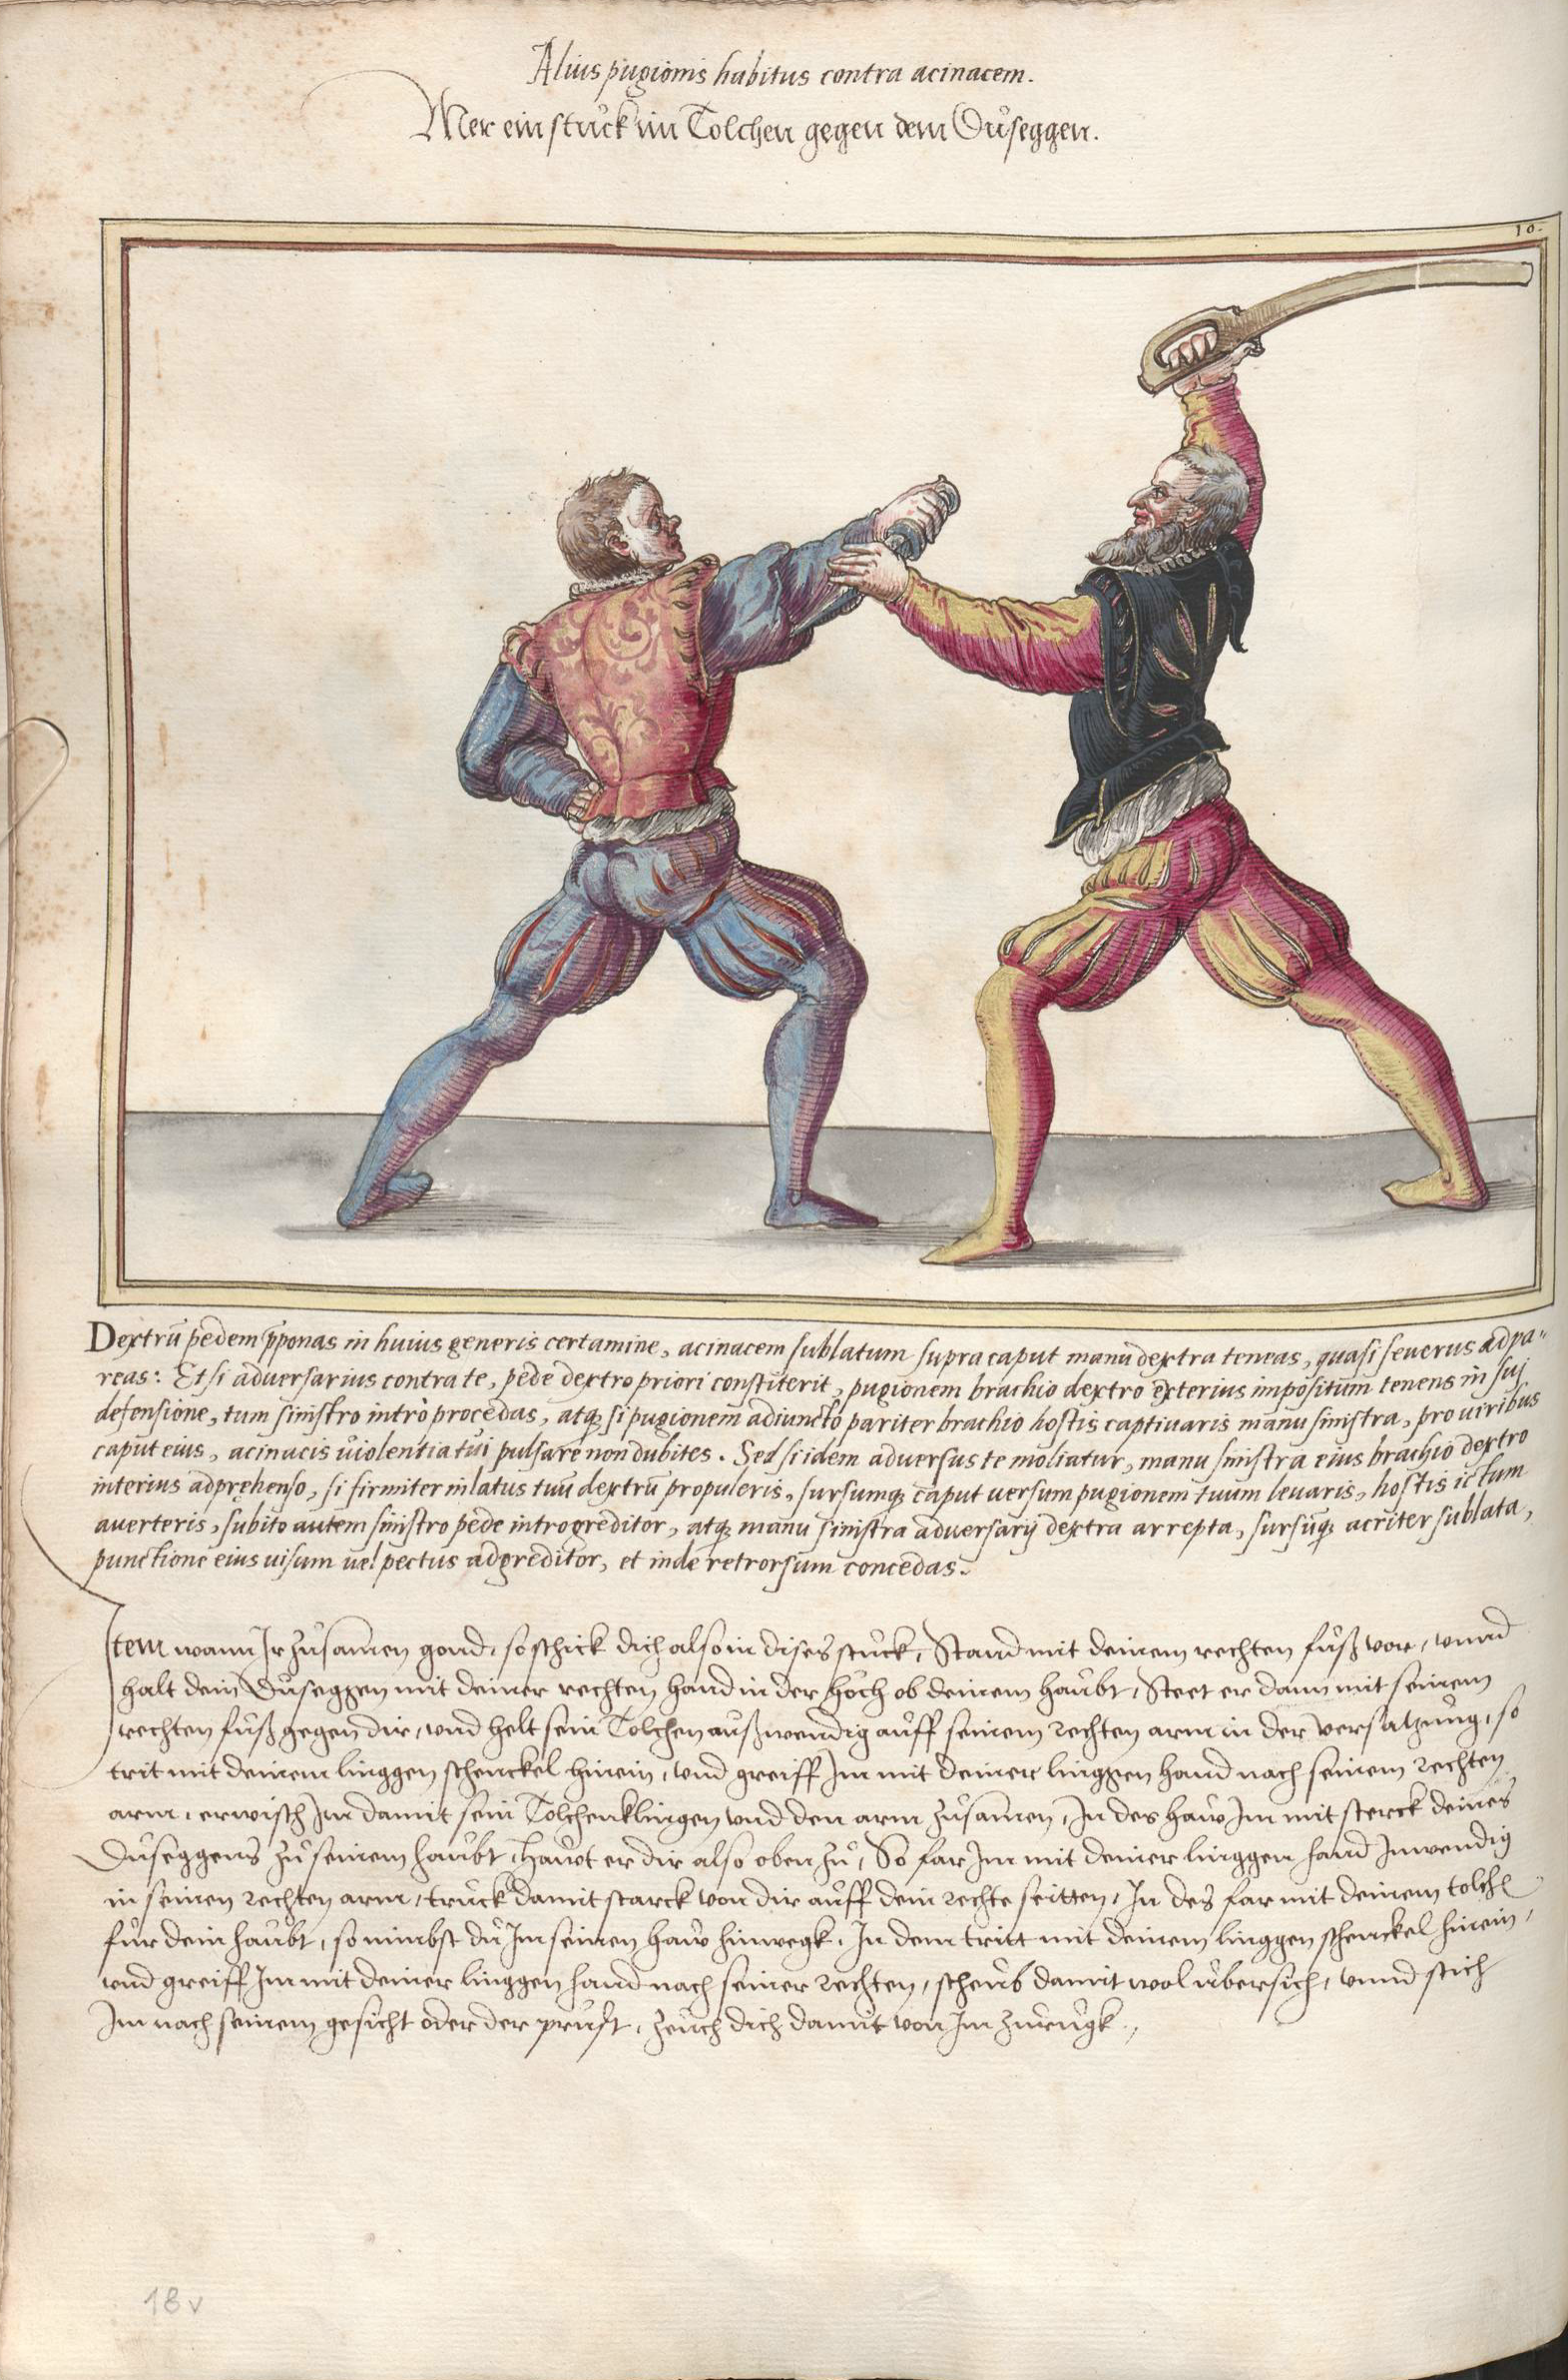 Alius pugionis habitus contra acinacem.
Mer ein stuck im Tolchen gegen dem Důseggen.
10.
Dextrū pedem p̄ponas in huius generis certamine, acinacem sublatum supra caput manu dextra teneas, quasi seuerus adpa-
reas: Et si aduersarius contra te, pede dextro priori constiterit, pugionem brachio dextro exterius impositum tenens in sui
defensione, tum sinistro intrò procedas, atq₃ si pugionem adiuncto pariter brachio hostis captiuaris manu sinistra, pro uiribus
caput eius, acinacis uiolentia tui pulsare non dubites. Sed si idem aduersus te moliatur, manu sinistra eius brachio dextro
interius adprehenso, si firmiter in latus tuū dextrū propuleris, sursumq₃ caput uersum pugionem tuum leuaris, hostis ictum
auerteris, subito autem sinistro pede introgreditor, atq₃ manu sinistra aduersarij dextra arrepta, sursūq₃ acriter sublata,
punctione eius uisum uel pectus adgreditor, et inde retrorsum concedas.
Item wann Ir zůsamen gond, so schick dich also in dises stuck, Stand mit deinem rechten fůß vor, vnnd
halt dein Důseggen mit deiner rechten hand in der hoch ob deinem haubt, Steet er dann mit seinem
rechten fůß gegen dir, vnd helt sein Tolchen außwendig auff seinem rechten arm in der versatzung, so
trit mit deinem linggen schenckel hinein, vnd greiff Im mit deiner linggen hand nach seinem rechten
arm, erwisch Im damit sein Tolchenklingen vnd den arm zůsamen, In des haw Im mit sterck deines
Důseggens zů seinem haubt, Hawt er dir also oben zů, So far Im mit deiner linggen hand Inwendig
in seinen rechten arm, truck damit starck von dir auff dein rechte seitten, In des far mit deinem tolchē
für dein haubt, so nimbst du Im seinen haw hinwegk, In dem tritt mit deinem linggen schenckel hinein,
vnd greiff Im mit deiner linggen hand nach seiner rechten, scheub damit wol übersich, vnnd stich
Im nach seinem gesicht oder der prust, zeuch dich damit von Im zurugk.
18v